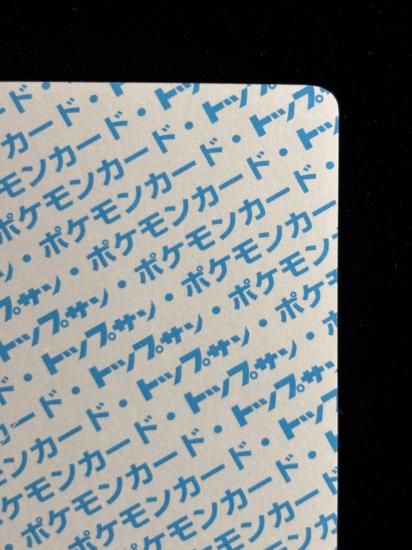 ード・トップ
カード・トップ
モンカード・トップ
ポケモンカード・トップ
・ポケモンカード・ト
ン・ポケモンカード・
プサン・ポケモンカード
トップサン・ポケモン
・トップサン・ポケ
ド・トップサン・ポ
カード・トップサン
モンカード・トップサ
ポケモンカード・トッ
ポケモンカード・
ポケモンカード
ポケモンカ